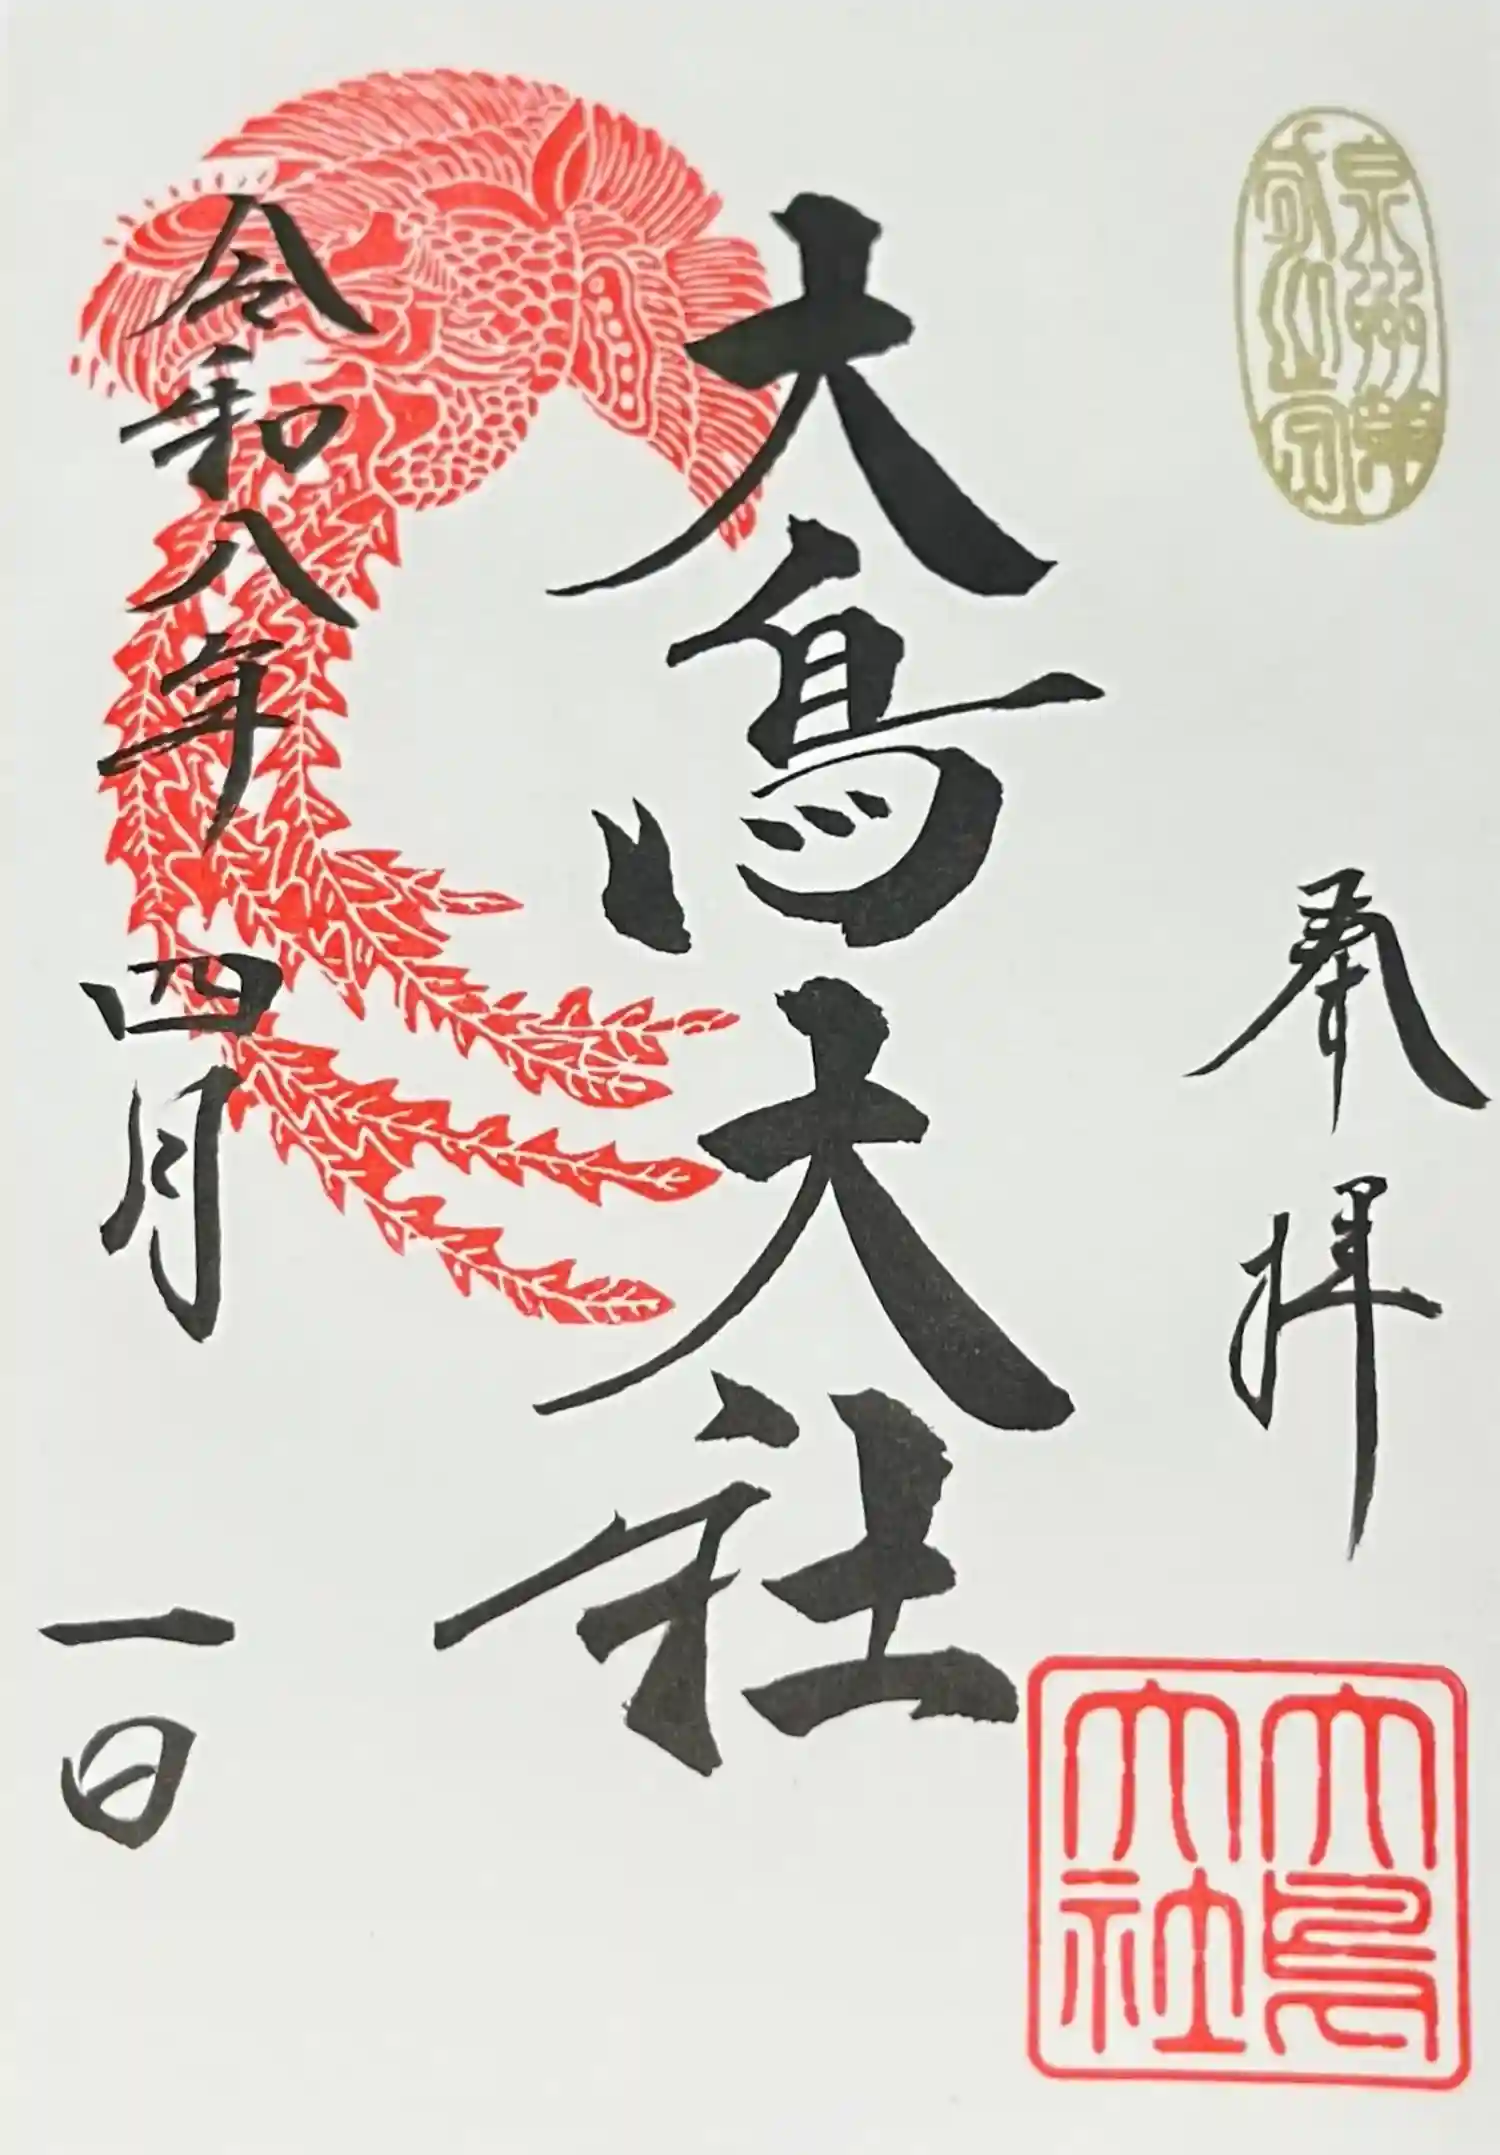 泉州第
弌之宮
奉拝
大鳥大社
令和八年四月一日
大鳥
大社